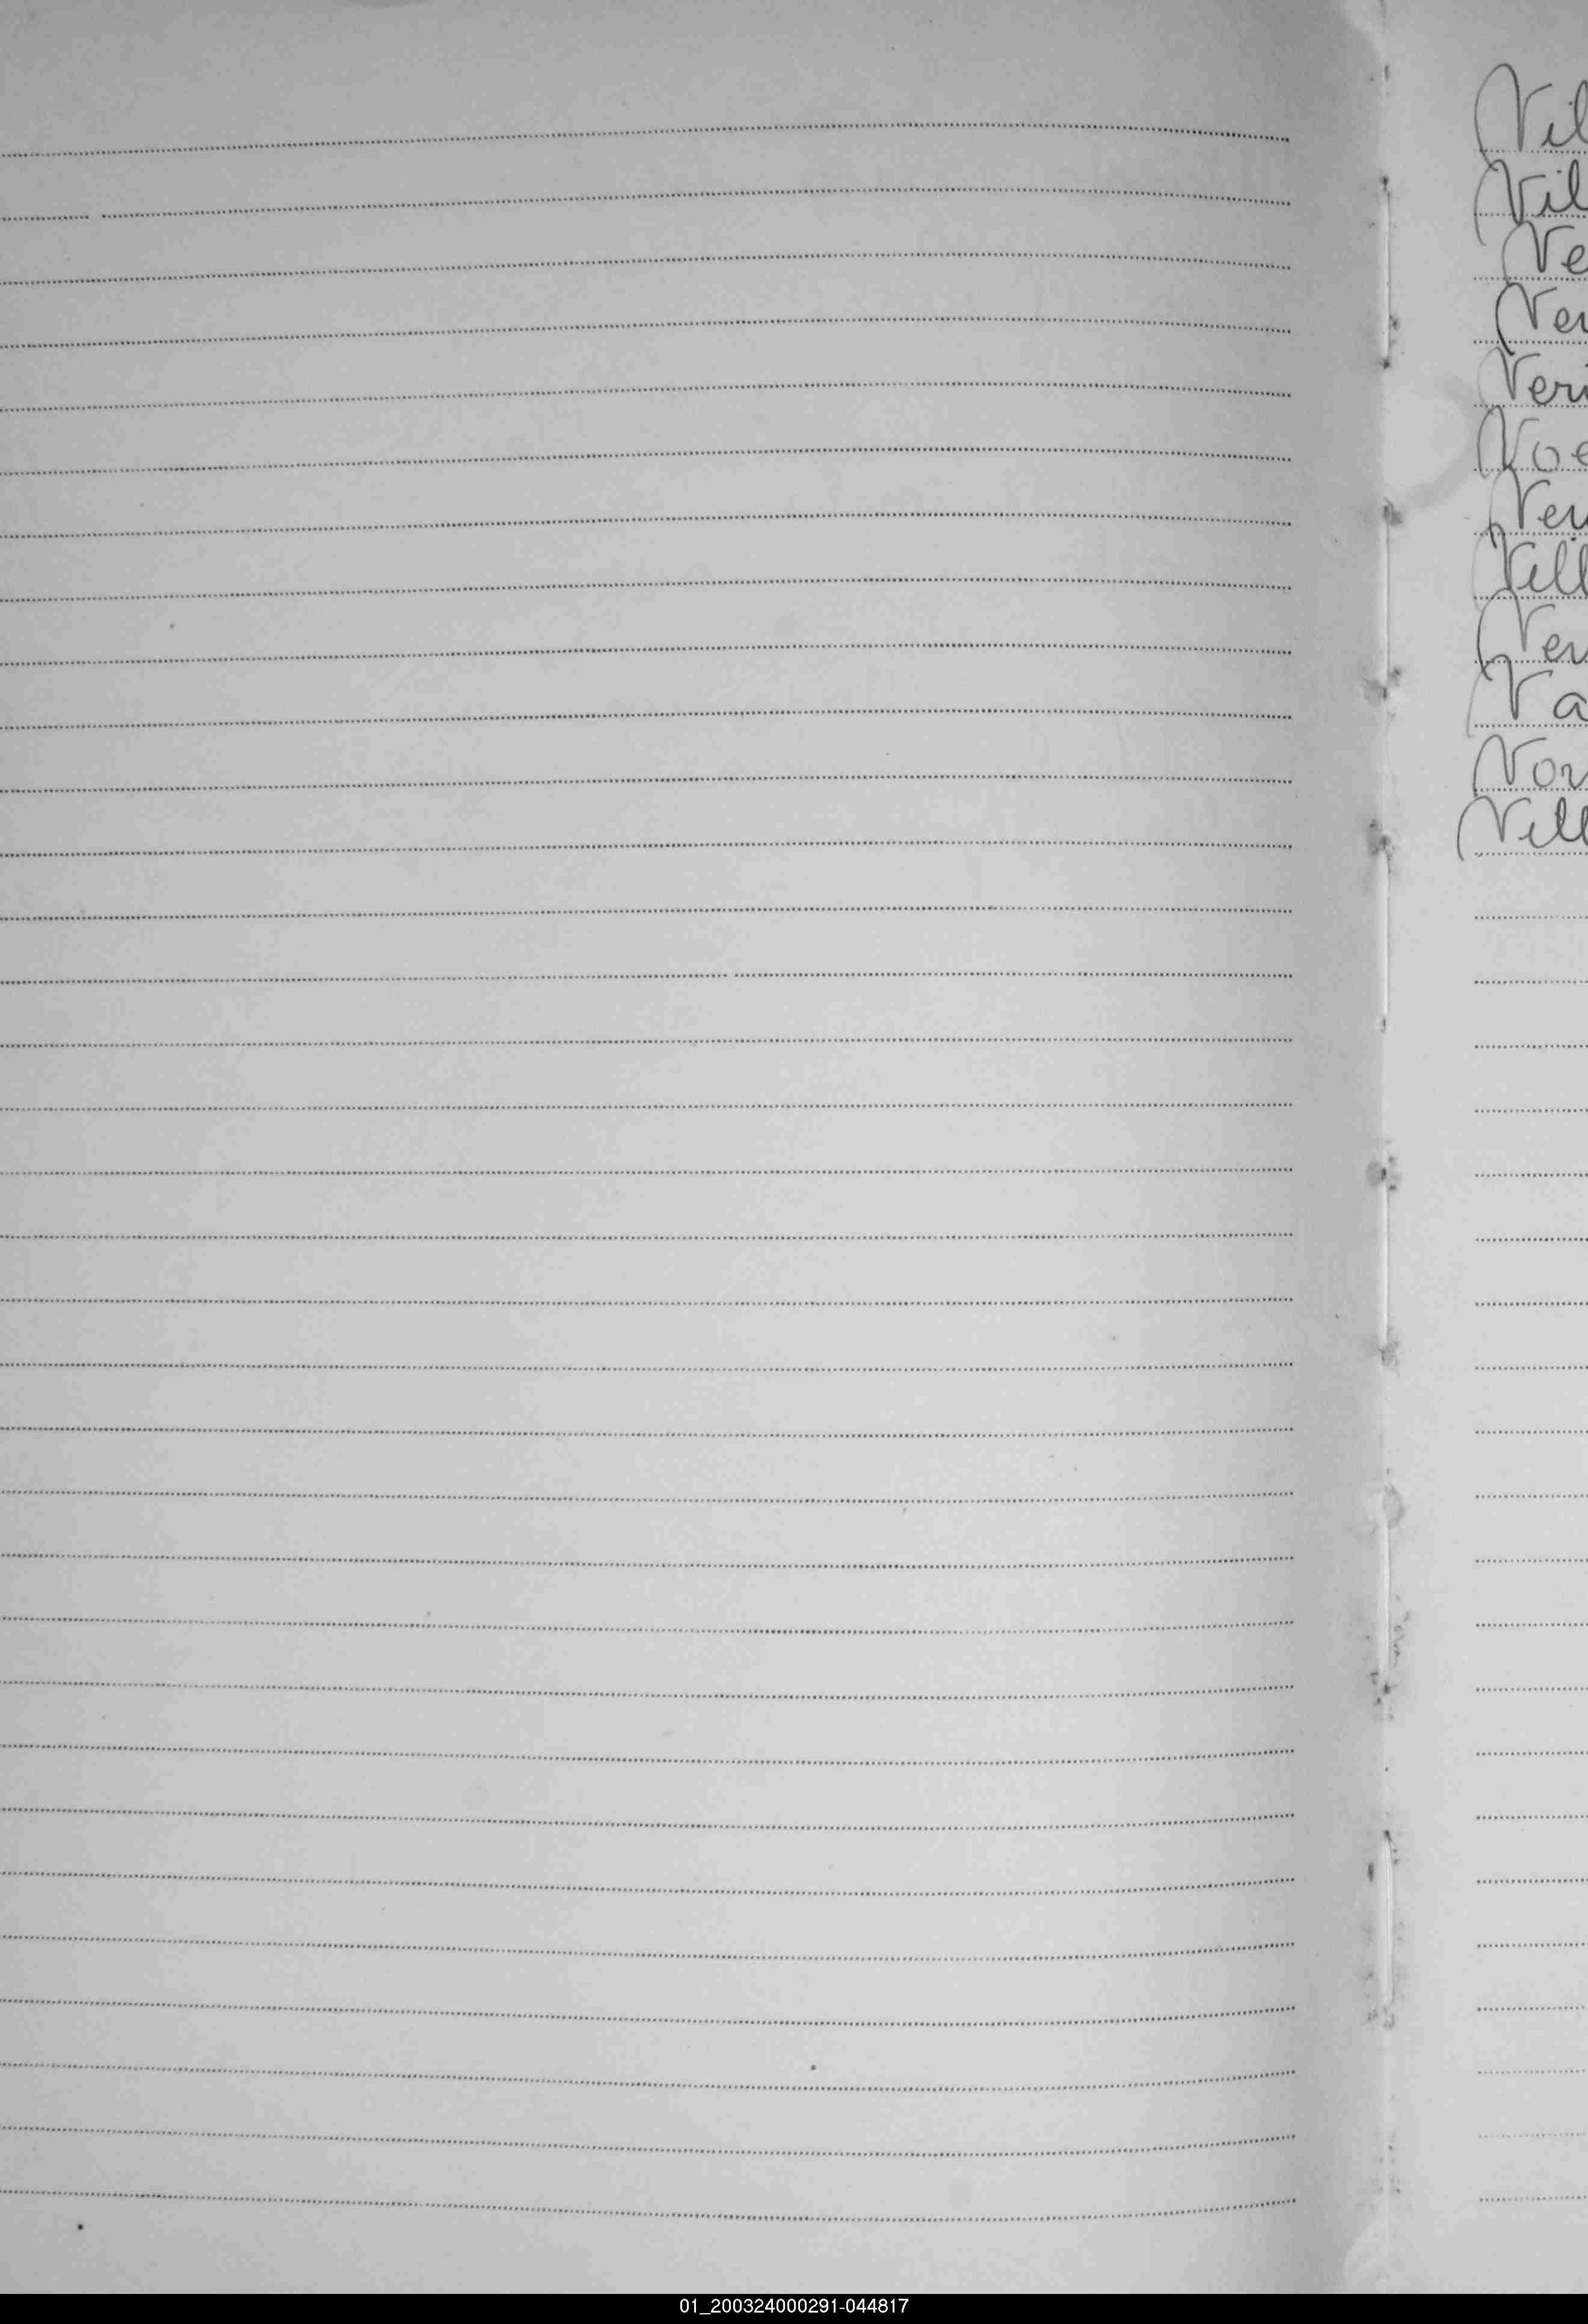 Vil
Vil
Ve
Ver
Veri
Voe
Ver
Vill
Ver
Va
Vor
Vill
01_200324000291-044817